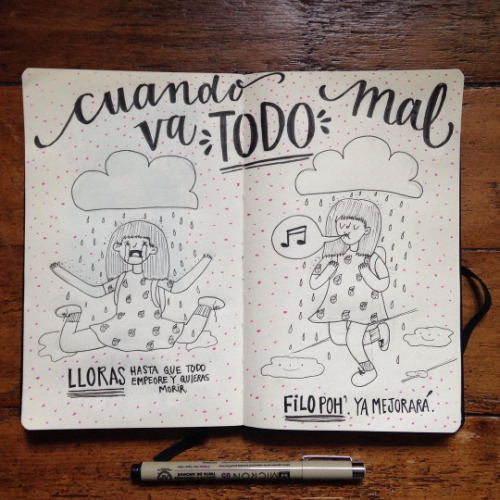 cuando mal
va TODO
LLORAS HASTA QUE TODO
EMPEORE Y QUIERAS
MORIR.
FiLO POH'. YA MEJORARÁ.
MICRON 05